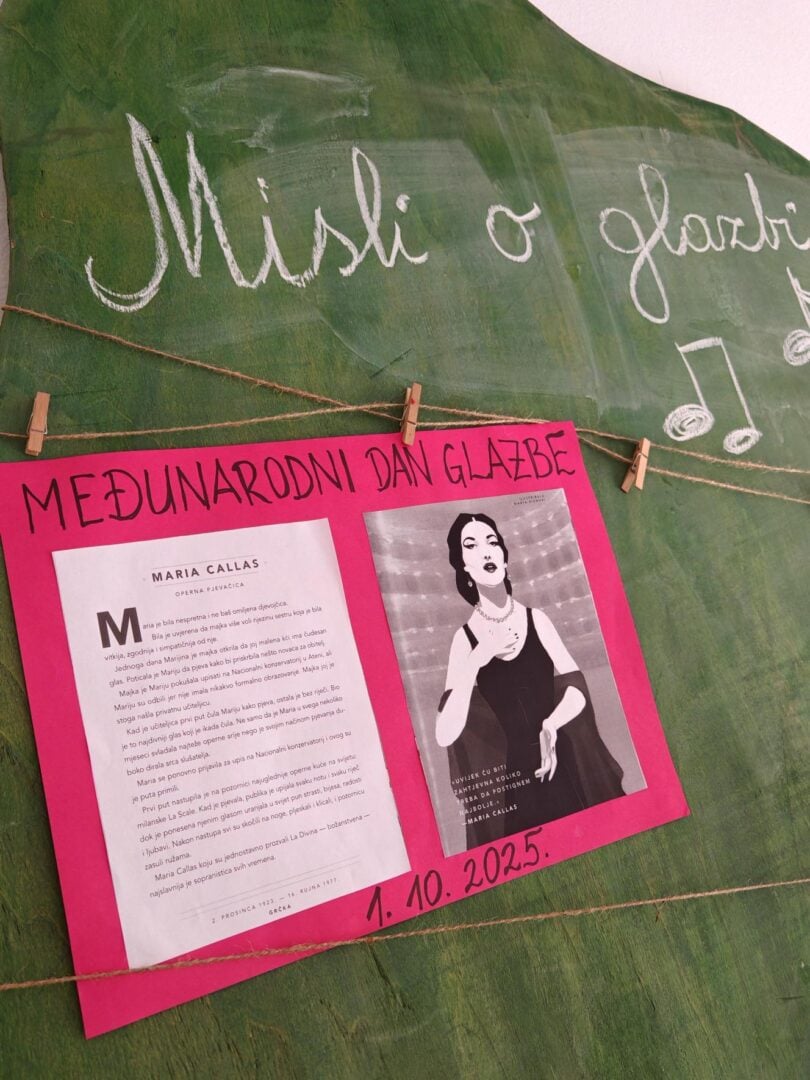 Misli o glazbi
MEĐUNARODNI DAN GLAZBE
MARIA CALLAS
OPERNA PJEVAČICA
Maria je bila nespretna i ne baš omiljena djevojčica.
Bila je uvjerena da majka više voli njezinu sestru koja je bila
vitkija, zgodnija i simpatičnija od nje.
Jednoga dana Marijina je majka otkrila da joj malena kći ima čudesan
glas. Poticala je Mariju da pjeva kako bi priskrbila nešto novaca za obitelj.
Majka je Mariju pokušala upisati na Nacionalni konzervatorij u Ateni, ali
Mariju su odbili jer nije imala nikakvo formalno obrazovanje. Majka joj je
stoga našla privatnu učiteljicu.
Kad je učiteljica prvi put čula Mariju kako pjeva, ostala je bez riječi. Bio
je to najdivniji glas koji je ikada čula. Ne samo da je Maria u svega nekoliko
mjeseci svladala najteže operne arije nego je svojim načinom pjevanja du-
boko dirala srca slušatelja.
Maria se ponovno prijavila za upis na Nacionalni konzervatorij i ovog su
je puta primili.
Prvi put nastupila je na pozornici najuglednije operne kuće na svijetu:
milanske La Scale. Kad je pjevala, publika je upijala svaku notu i svaku riječ
dok je ponesena njenim glasom uranjala u svijet pun strasti, bijesa, radosti
i ljubavi. Nakon nastupa svi su skočili na noge, pljeskali i klicali, i pozornicu
zasuli ružama.
Maria Callas koju su jednostavno prozvali La Divina — božanstvena —
najslavnija je sopranistica svih vremena.
2. PROSINCA 1923. — 16. RUJNA 1977.
GRČKA
»UVIJEK ĆU BITI
ZAHTJEVNA KOLIKO
TREBA DA POSTIGNEM
NAJBOLJE.«
—MARIA CALLAS
1. 10. 2025.